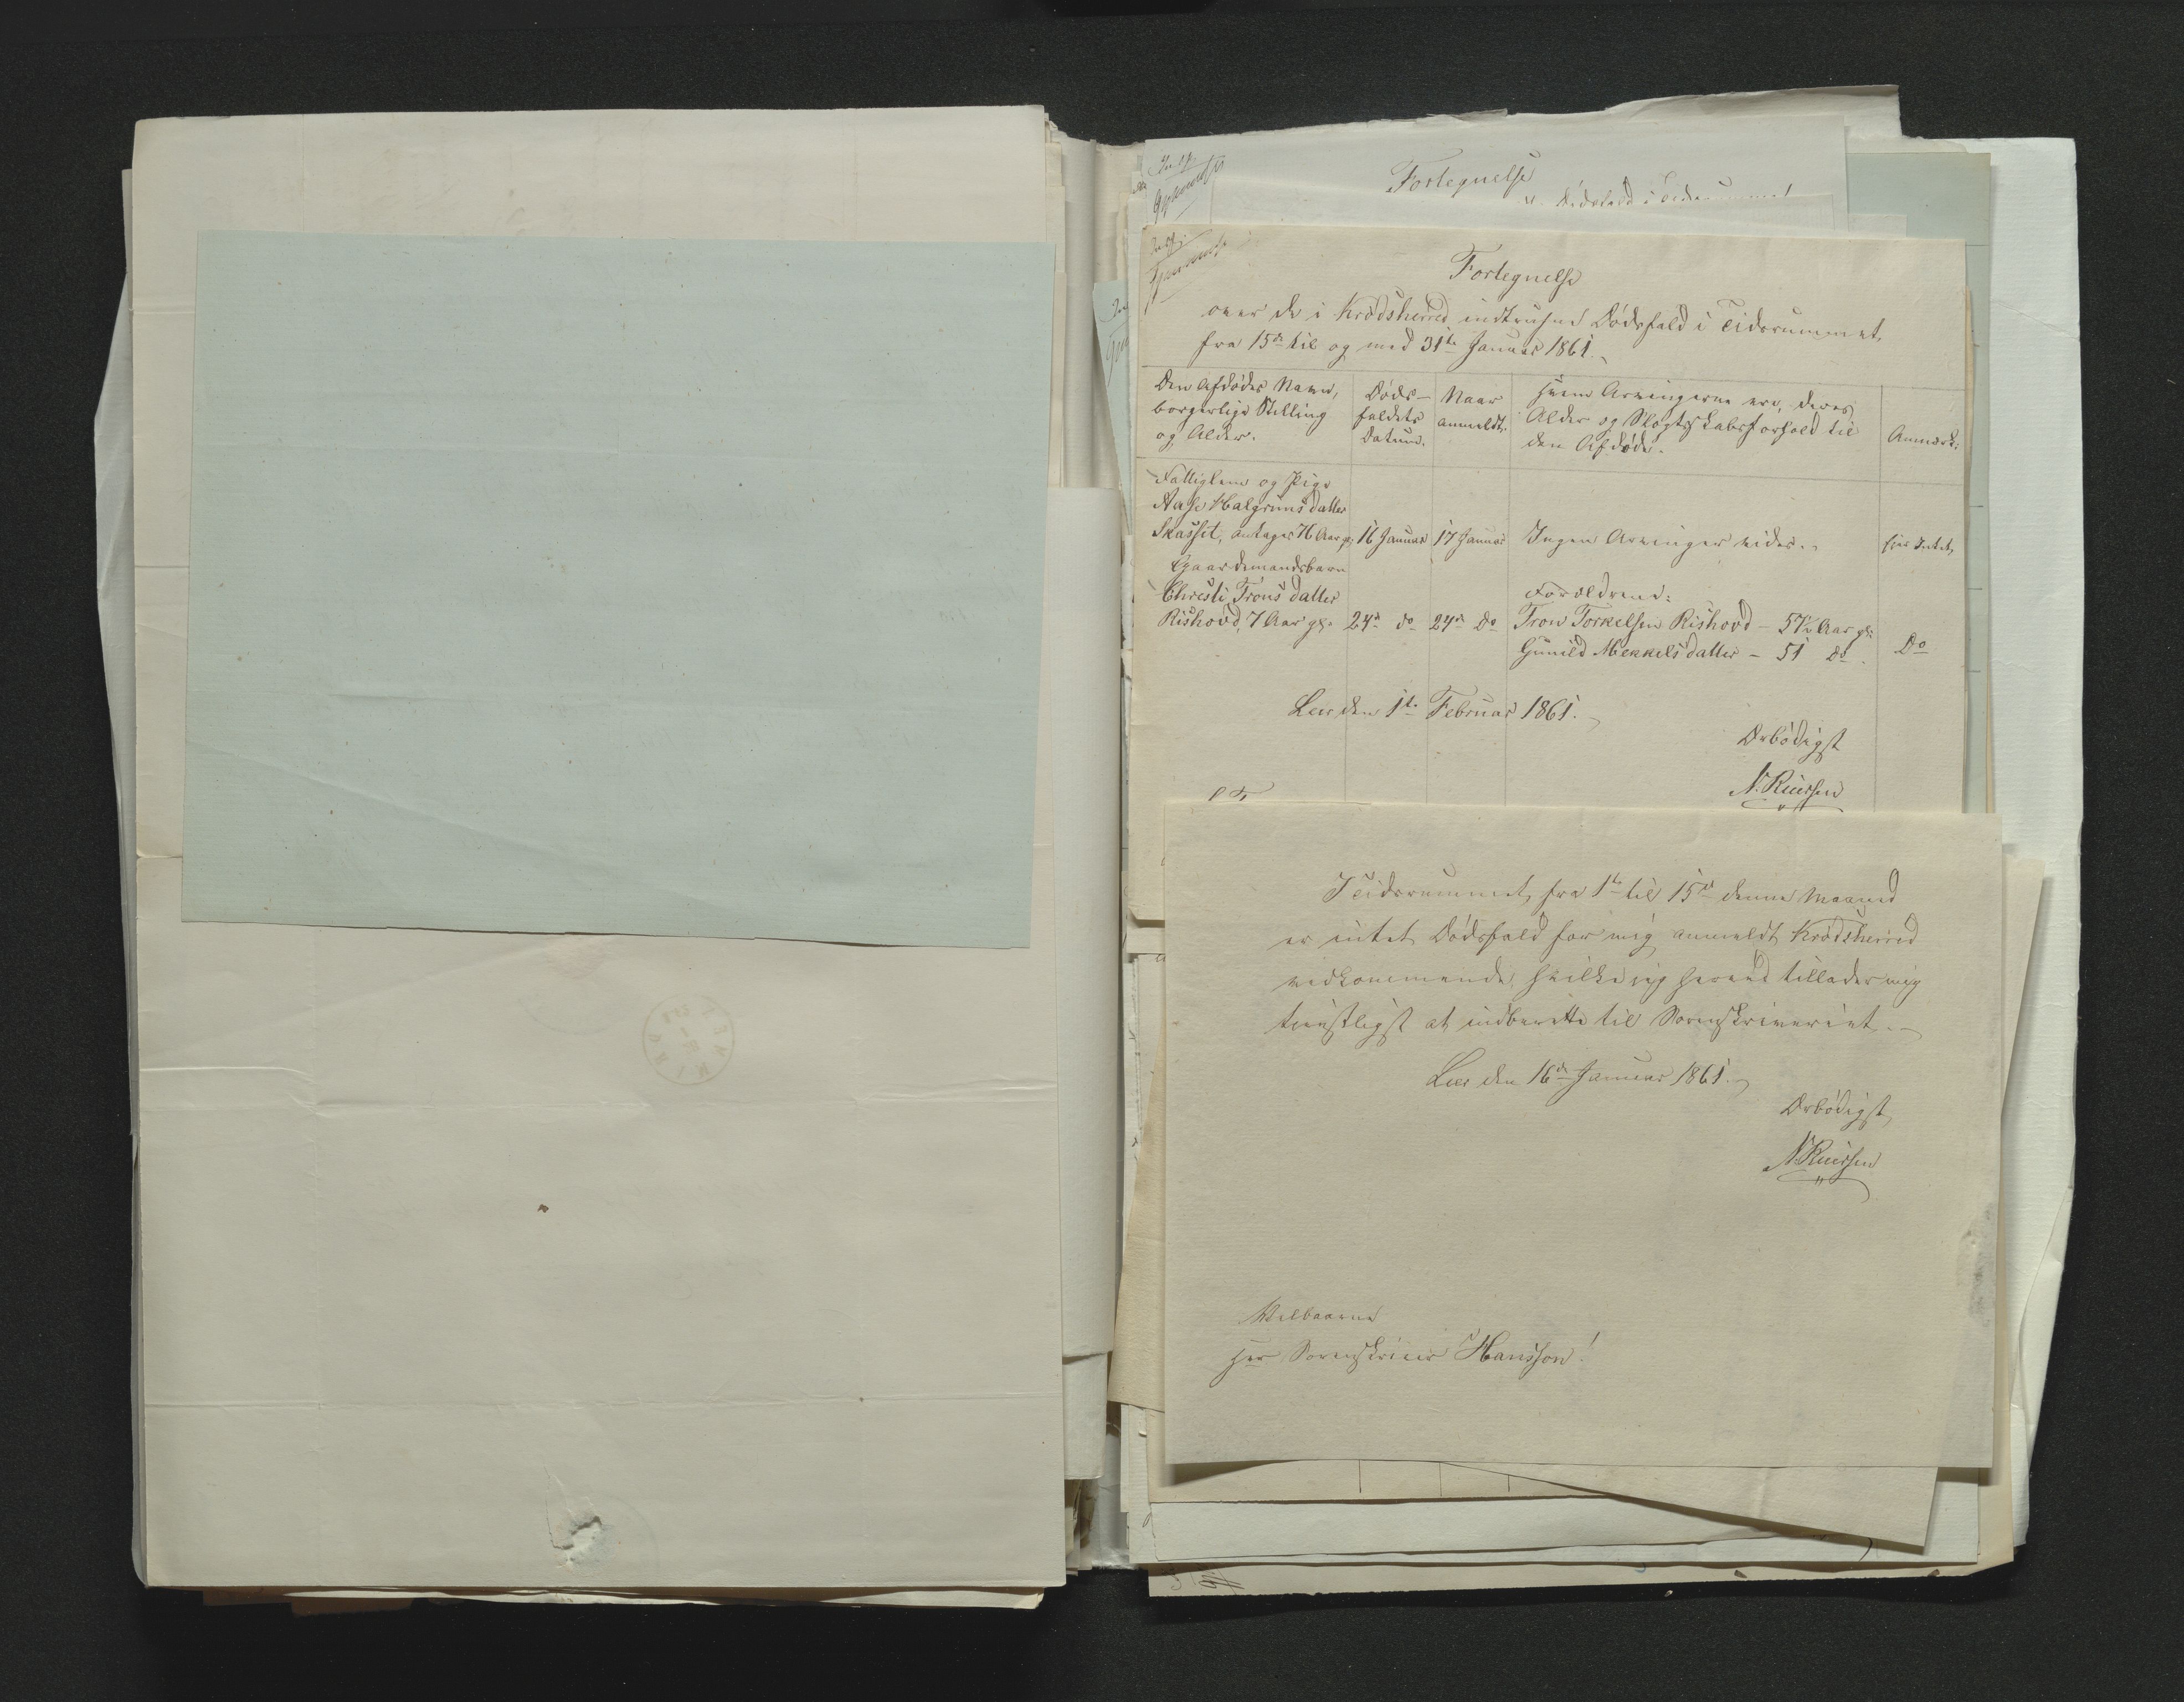 Fortegnelse
Dødsfald i Tidsrummet
Fortegnelse
over de i Krødsherred indtrufne Dødsfald i Tidsrummet
fra 15de til og med 31te Januar 1861.
Den Afdødes Navn,
borgerlige Stilling
og Alder.
Døds-
faldets
Datum.
Naar
anmeldt.
Hvem Arvingerne ere, deres
Alder og Slægtskabsforhold til
den Afdøde.
Anmærk:
Fattiglem og Pige
Aase Halgrimsdatter
Skasset, antages 76 Aar gl. 16 Januar 17 Januar Ingen Arvinger vides. Eier Intet,
Gaardemandsbarn
Christi Tronsdatter Forældrene:
Rishovd, 7 Aar gl. 24de do 24de Do Tron Torkelsen Rishovd - 57½ Aar gl:
Gunild Mekkelsdatter - 51 do. Do
Lier den 1te Februar 1861.
Ærbødigst
N. Ruersen
I Tidsrummet fra 1te til 15de denne Maaned
er intet Dødsfald for mig anmeldt Krødsherred
vedkommende, hvilket jeg herved tillader mig
tienstligst at indberette til Sorenskriveriet.
Lier den 16de Januar 1861.
Ærbødigst,
N. Ruersen
Velbaarne
Hr Sorenskriver Hansson!